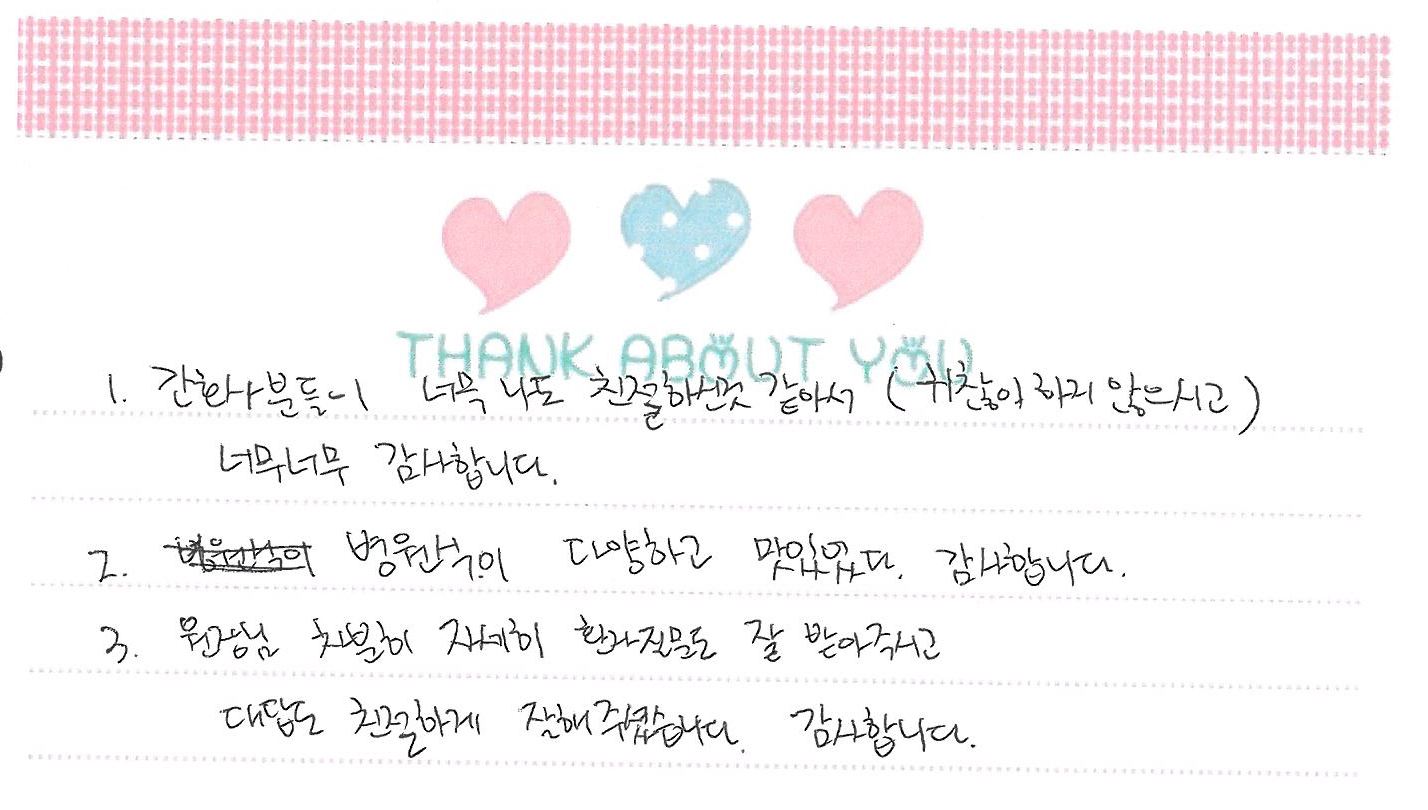 THANK ABOUT YOU
1. 간호사분들이 너무 나도 친절하신것 같아서 (귀찮아 하지 않으시고)
너무너무 감사합니다.
2. 병원식이 다양하고 맛있었다. 감사합니다.
3. 원장님 차분히 자세히 환자질문도 잘 받아주시고
대답도 친절하게 잘해주셨습니다. 감사합니다.